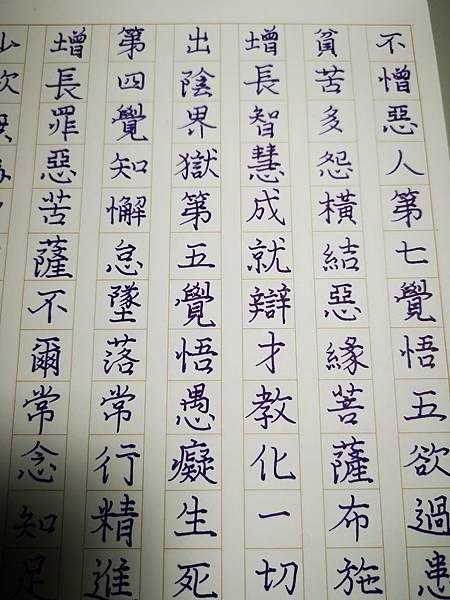 不憎惡人第七覺悟五欲過患
貧苦多怨橫結惡緣菩薩布施
增長智慧成就辯才教化一切
出陰界獄第五覺悟愚癡生死
第四覺知懈怠墜落常行精進
增長罪惡苦薩不爾常念知足